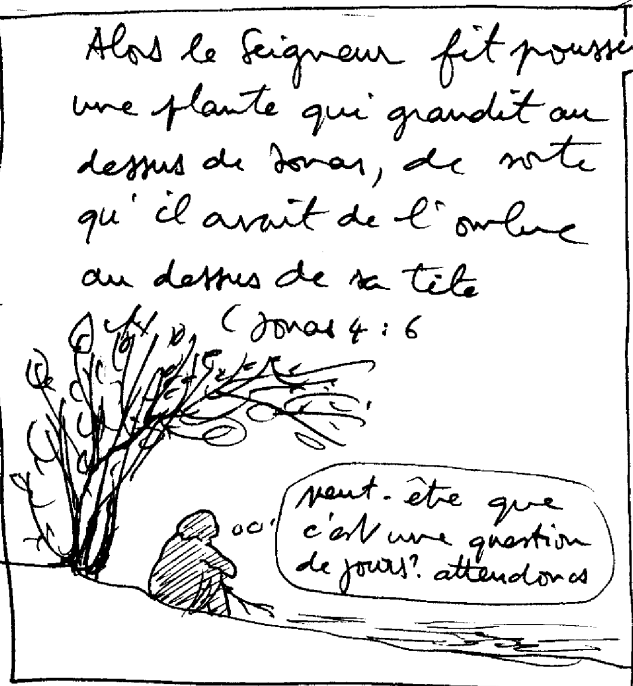 Alors le Seigneur fit pousser
une plante qui grandit au
dessus de Jonas, de sorte
qu'il avait de l'ombre
au dessus de sa tête
(Jonas 4 : 6
peut-être que
c'est une question
de jours? attendons